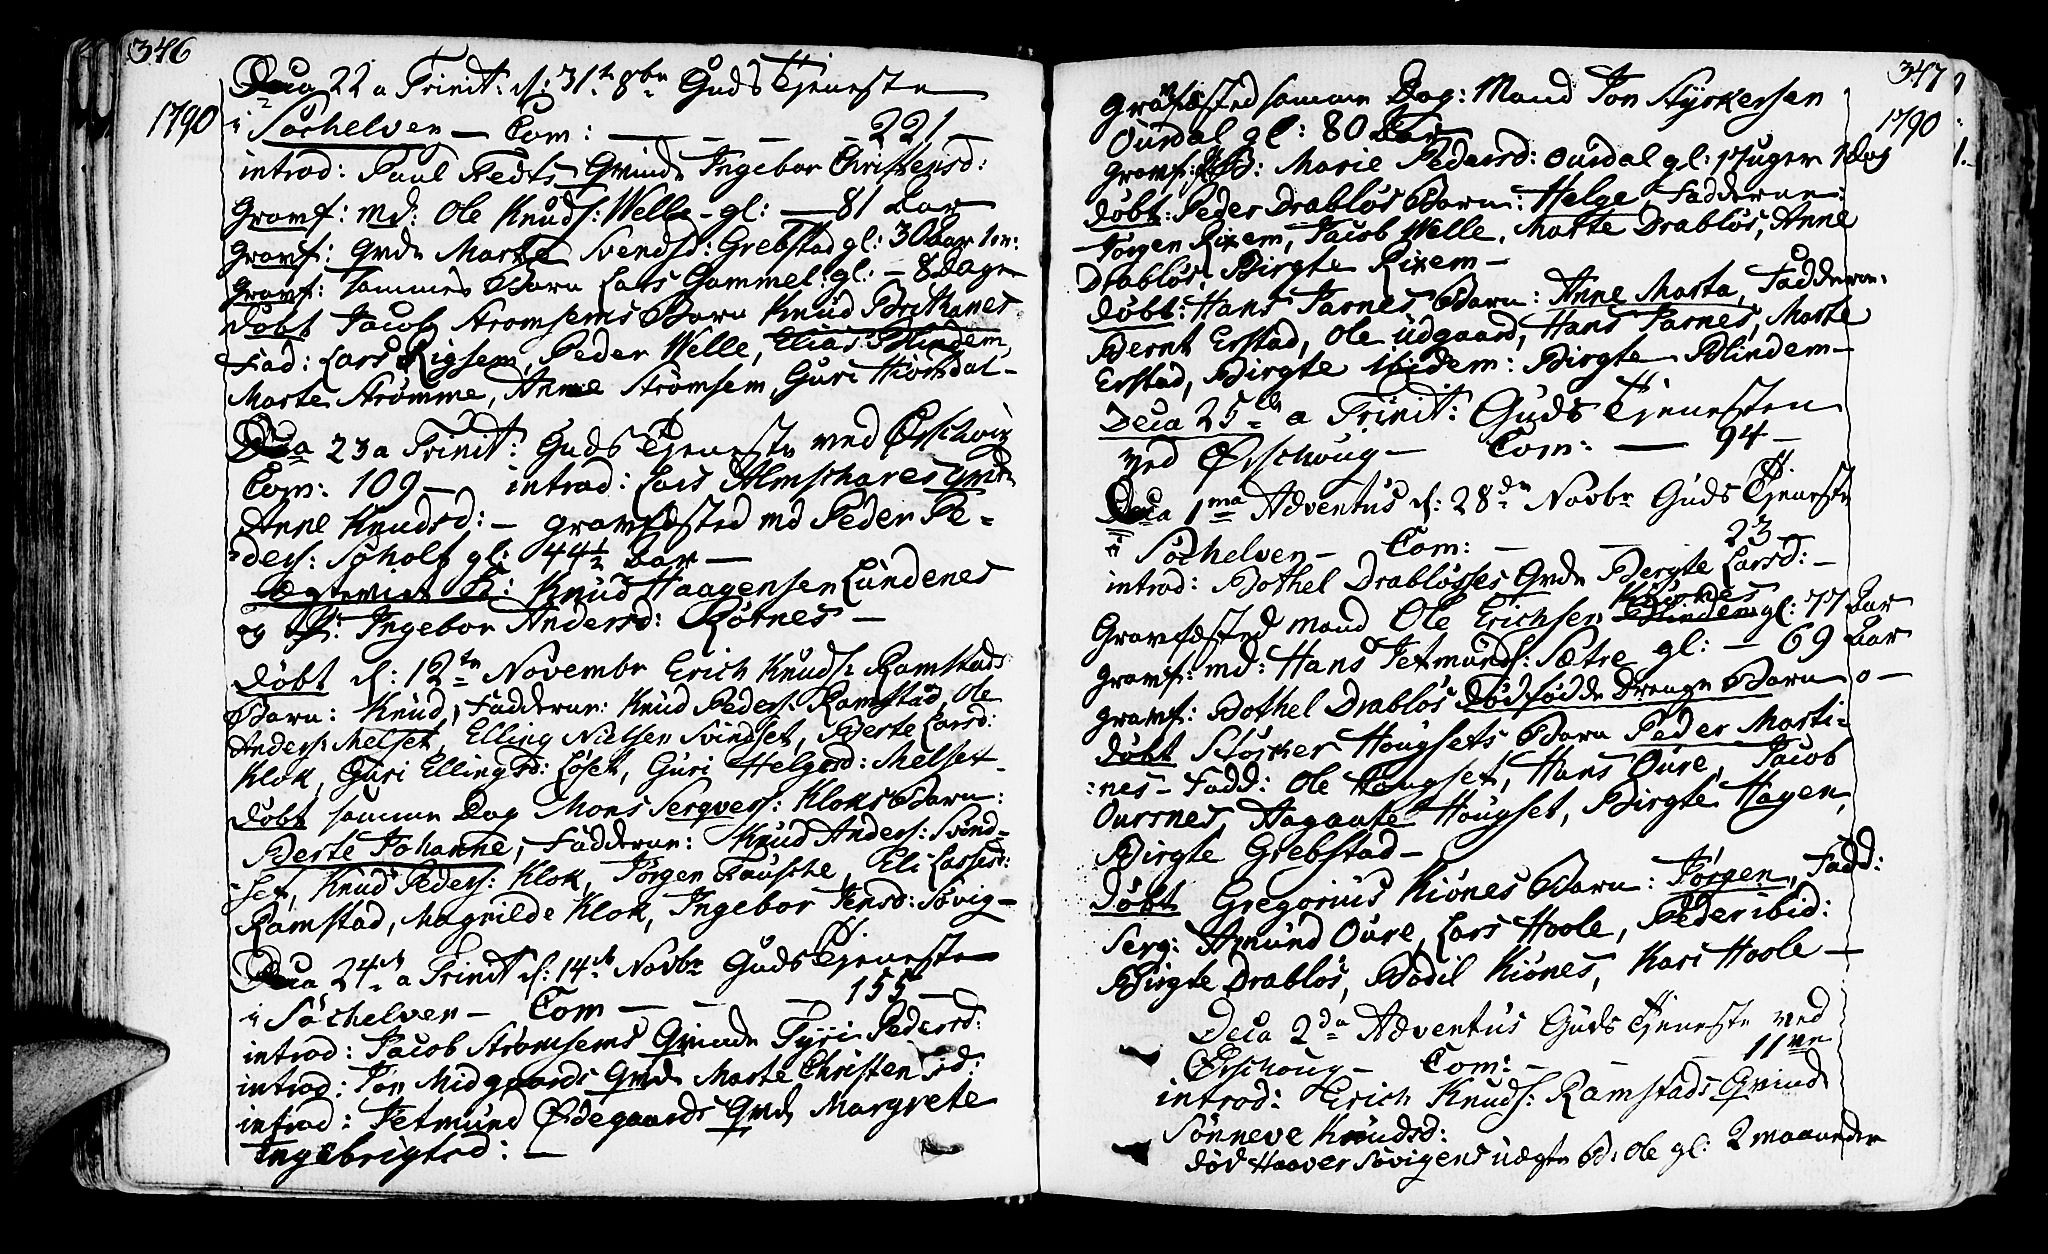 346
1790
Dca 22 a Trinit: d: 31te 8br Guds Tjeneste
i Söchelven — Com: — — — 221 —
introd: Paul Fedts Qvinde Ingebor Christensd:
Gravf: md: Ole Knuds: Welle - gl: — 81 Aar
Gravf: Qvde Marte Svendsd: Grebstad gl: 30 Aar
Gravf: Sammes Barn Lars Gammel: gl: — 8 Dage
Döbt Jacob Strømsems Barn Knud Brithanes
Fad: Lars Rigsem, Peder Welle, Elias Blindem,
Marte Strømme, Anne Strømsem, Guri Hiortdal —
Dca 23 a Trinit: Guds Tjeneste ved Ørschoug
Com: 109 — introd: Lars Almschares Qvde
Anne Knudsd: — gravfæsted md Peder Pe=
=ders: Søholt gl: 44½ Aar —
Egteviet K: Knud Haagensen Lundenes
og P: Ingebor Andersd: Røtnes —
Döbt d: 12te Novembr Erich Knuds: Ramstads
Barn: Knud, Fadderne: Knud Peders: Ramstad, Ole
Anders: Melset, Elling Nielsen Svindset, Berte Larsd:
Klok, Guri Ellingsd: Løset, Guri Helgesd: Melset —
Döbt samme Dag Mons Sergvers: Kloks Barn:
Berte Johanne, Fadderne: Knud Anders: Svind=
=set, Knud Peders: Klok, Jørgen Fausche, Eli Larsd:
Ramstad, Magnilde Klok, Ingebor Jensd: Søvig —
Dca 24de a Trinit d: 14de Novbr Guds Tjeneste
i Söchelven — Com — — — 155 —
introd: Jacob Strømsems Qvinde Pedersd:
introd: Jon Midgaards Qvde Marte Christensd:
introd: Jetmund Ødegaards Qvde Margrete
Ingebrigtsd: —
347
1790
Gravfæsted samme Dag: Mand Jon Styrkersen
Ourdal gl: 80 Aar
Gravf: Marie Pedersd: Ourdal gl: 17 uger 1 Dag
Döbt: Peder Drabløs Barn: Helge, Fadderne:
Jørgen Rixem, Jacob Welle, Marte Drabløs, Anne
Drabløs, Birgte Rixem —
Döbt: Hans Jarnes Barn: Anne Marta, Fadderne:
Bernt Erstad, Ole Udgaard, Hans Jarnes, Marte
Erstad, Birgte ibidem: Birgte Blindem —
Dca 25de a Trinit: Guds Tjenesten
ved Ørschoug — Com: — 94 —
Dca 1ma Adventus d: 28de Novbr Guds Tjeneste
i Söchelven — Com: — — 23 —
introd: Bothel Drabløsses Qvde Bergte Larsd: —
Gravfæsted mand Ole Erichsen Blindem gl: 77 Aar
Gravf: md: Hans Jetmunds: Sætre gl: — 69 Aar
Gravf: Bothel Drabløs Dödfödde Drenge Barn — 0 —
Döbt Støcker Hougsets Barn Peder Marti=
=nes — Fadd: Ole Hougset, Hans Oure, Jacob
Oursnes, Aagaate Hougset, Birgte Hagen,
Birgte Grebstad —
Döbt Gregorius Kiønes Barn: Jørgen, Fadd:
Serg: Amund Oure, Lars Hoole, Peder ibid:
Birgte Drabløs, Bodil Kiønes, Kari Hoole —
Dca 2da Adventus Guds Tjeneste ved
Ørschoug — Com: — — 11ve
introd: Erich Knuds: Ramstads Qvinde
Sønneve Knudsd:
død Haaver Søvigens uægte B: Ole gl: 2 maaneder